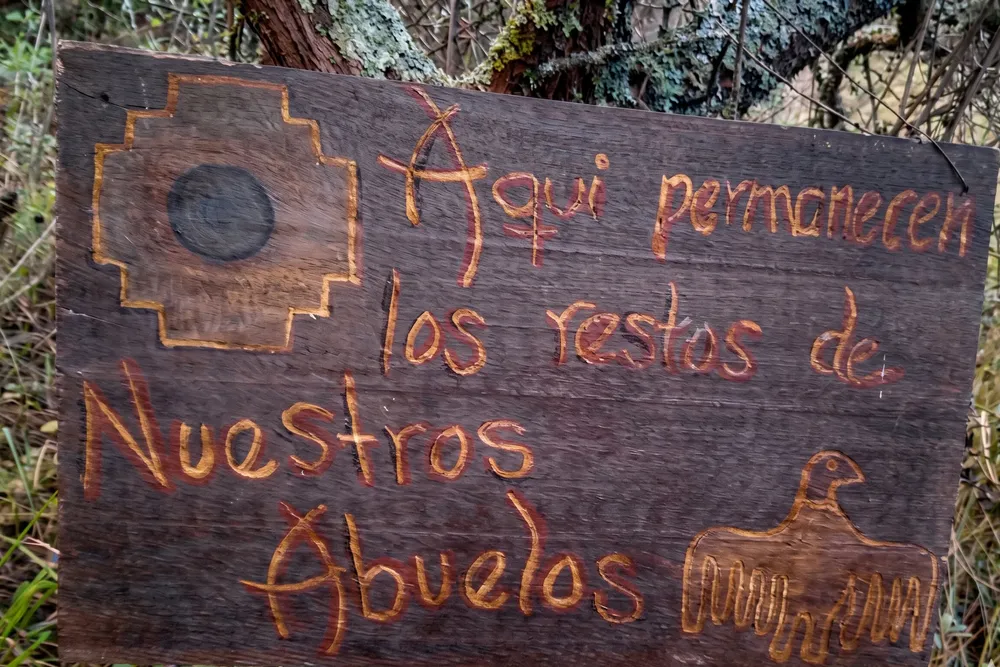 Aqui permanecen
los restos de
Nuestros
Abuelos